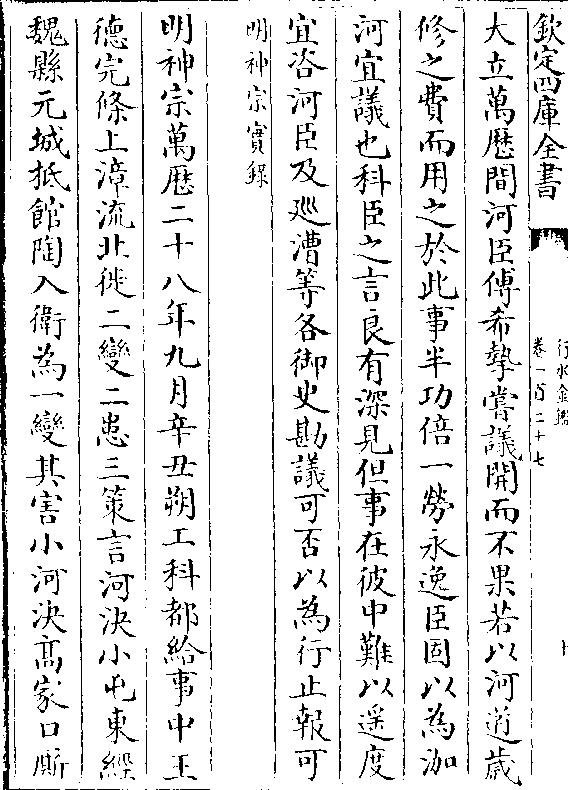 欽定四庫全書
行水金鑑
卷一百二十七
大立萬厯間河臣傅希摯嘗議開而不果若以河道歲
修之費而用之於此事半功倍一勞永逸臣固以為泇
河宜議也科臣之言良有深見但事在彼中難以遥度
宜咨河臣及廵漕等各御史勘議可否以為行止報可
明神宗實錄
明神宗萬厯二十八年九月辛丑朔工科都給事中王
德完條上漳流北徙二變二患三策言河決小屯東經
魏縣元城抵館陶入衛為一變其害小河決髙家口㫁